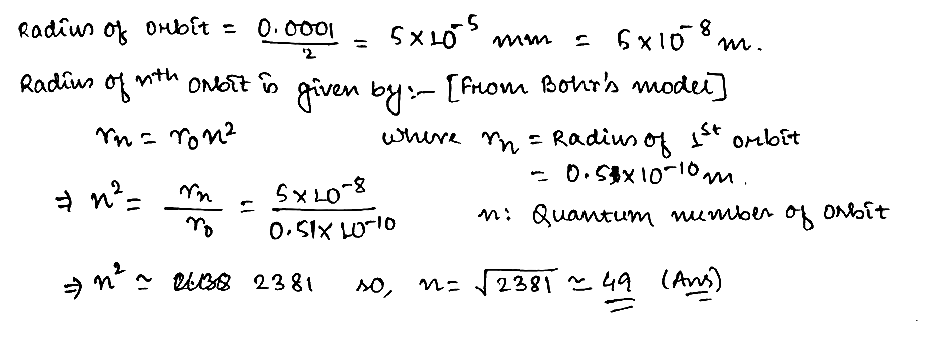 Radius of orbit = 0.0001/2 = 5×10⁻⁵ mm = 5×10⁻⁸ m.
Radius of nth orbit is given by:- [From Bohr's model]
rn = r₀n² where rn = Radius of 1st orbit
= 0.51×10⁻¹⁰ m.
⇒ n² = rn/r₀ = 5×10⁻⁸/0.51×10⁻¹⁰ n: Quantum number of orbit
⇒ n² ≃ 2381 so, n = √2381 ≃ 49 (Ans)